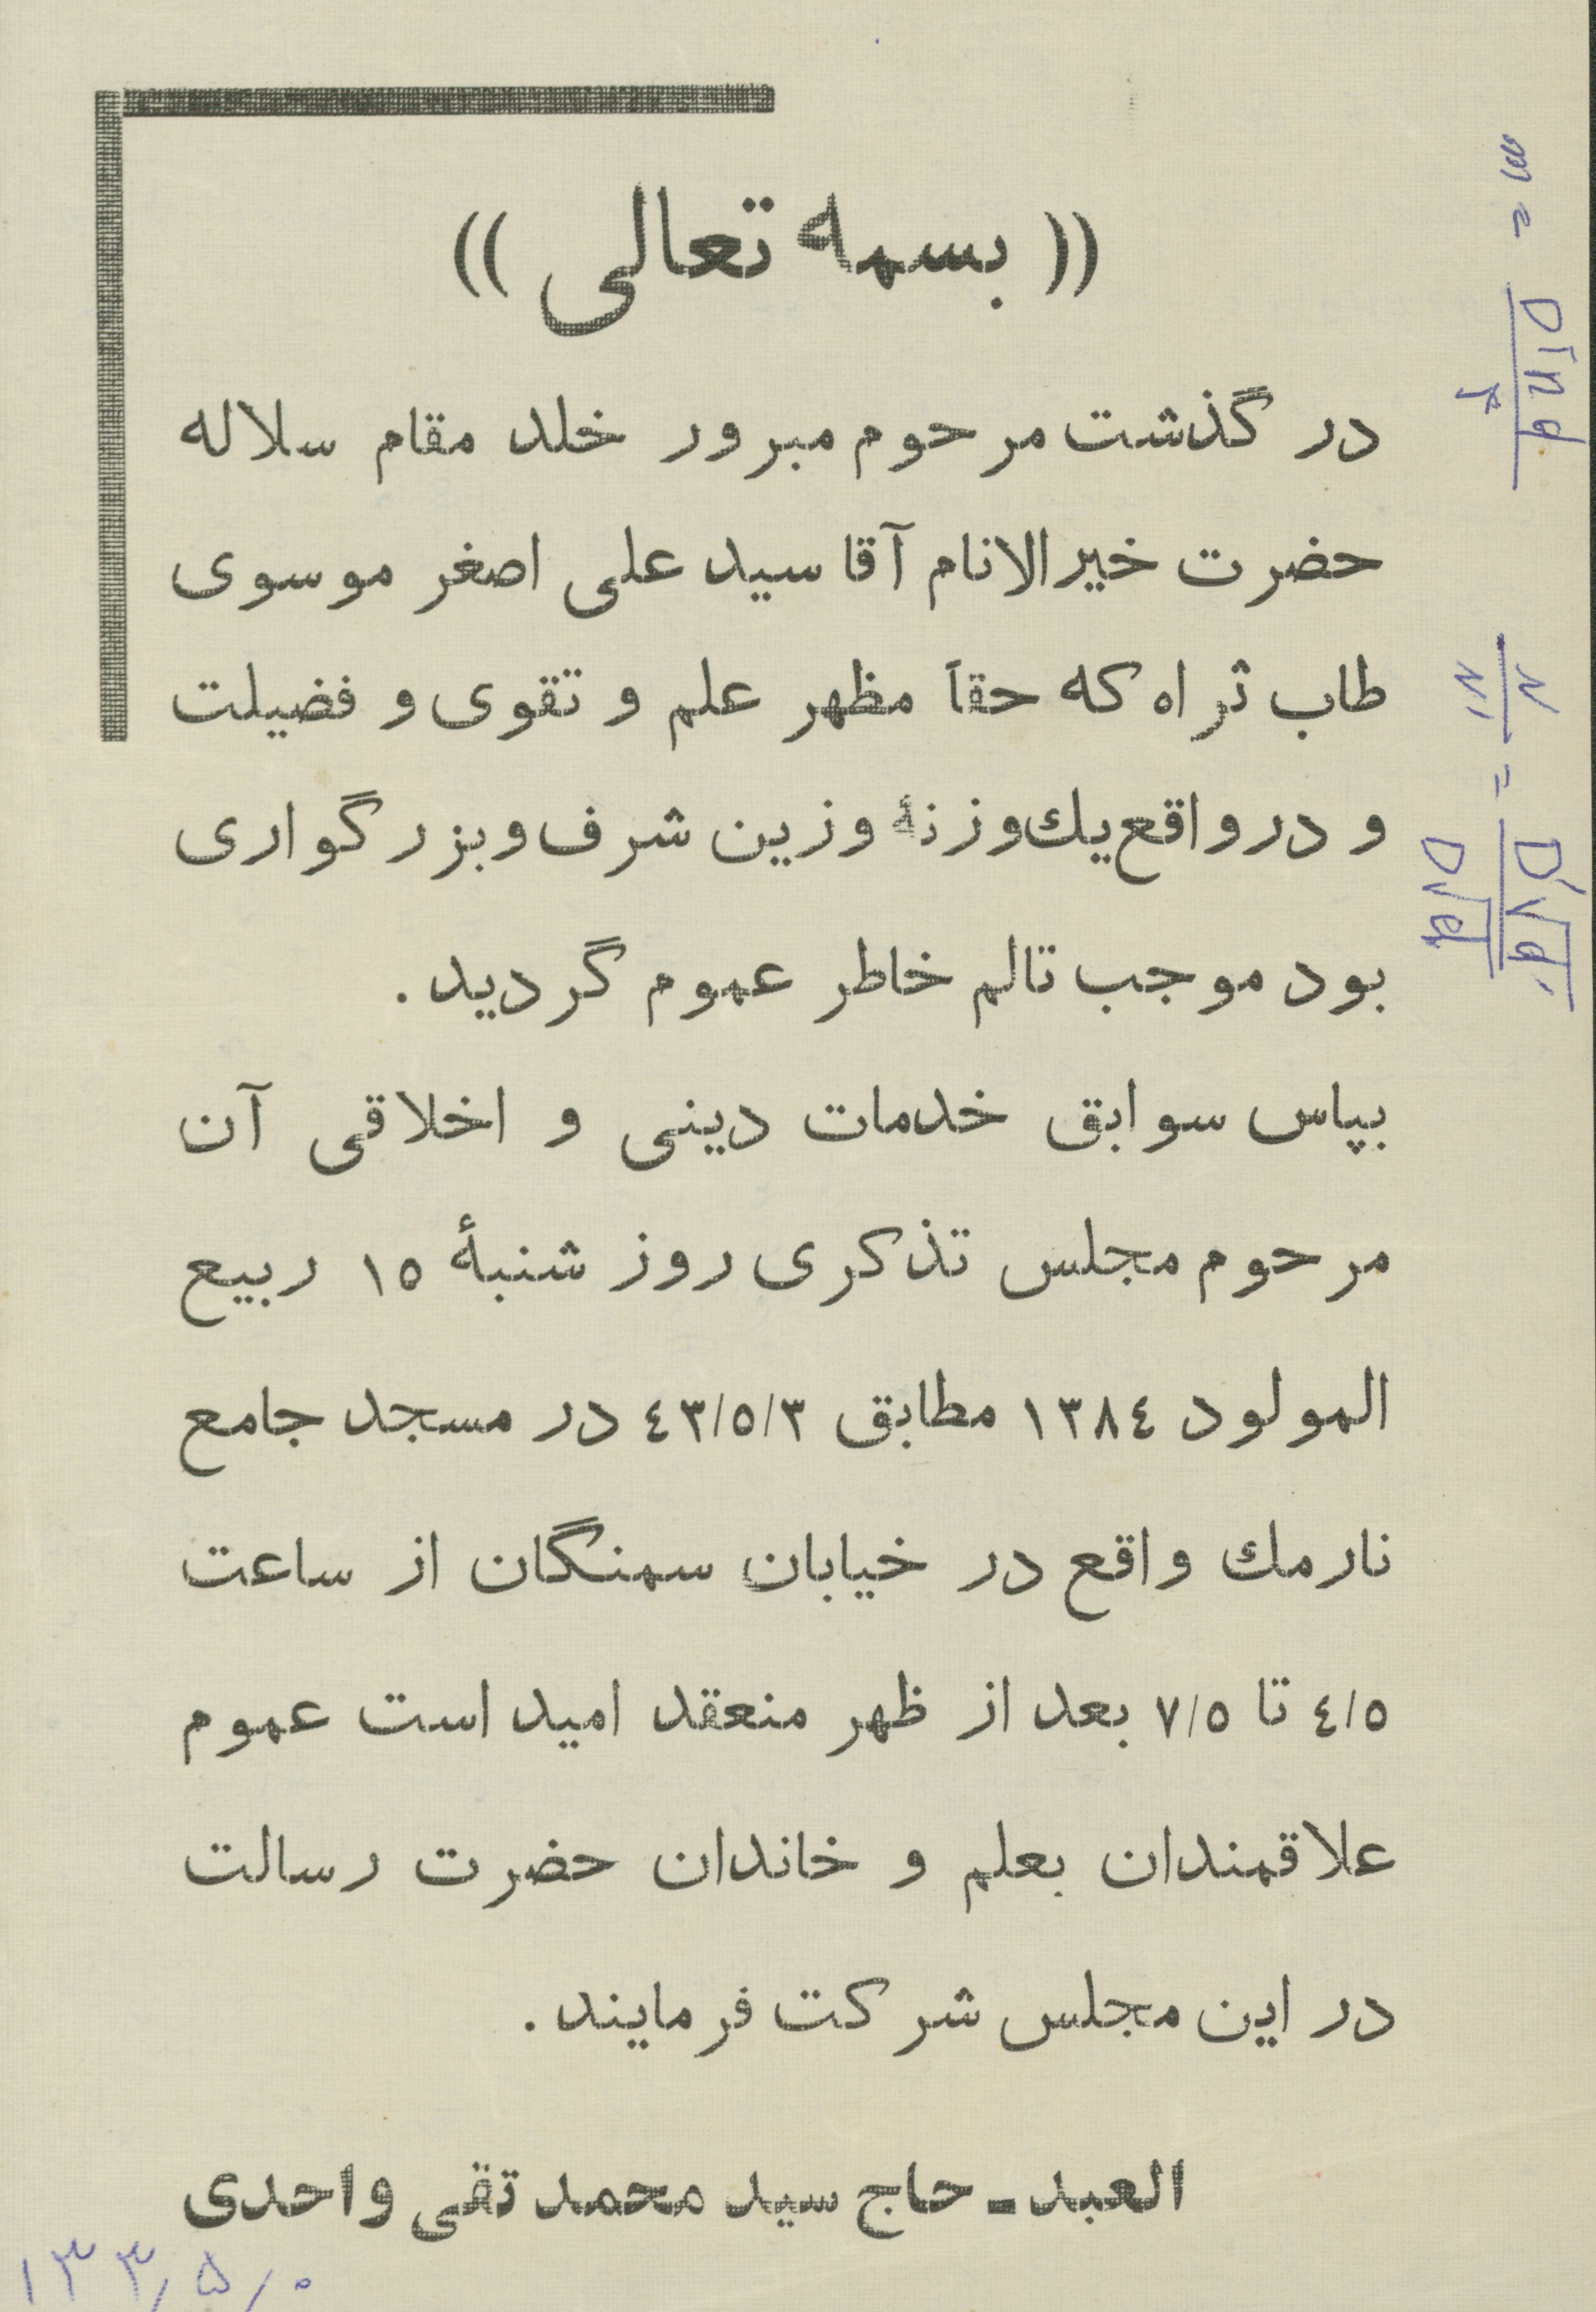 (( بسمه تعالی ))
در گذشت مرحوم مبرور خلد مقام سلاله
حضرت خیرالانام آقا سید علی اصغر موسوی
طاب ثراه که حقاً مظهر علم و تقوی و فضیلت
و درواقع یك وزنهٔ وزین شرف وبزرگواری
بود موجب تالم خاطر عموم گردید .
بپاس سوابق خدمات دینی و اخلاقی آن
مرحوم مجلس تذکری روز شنبهٔ ١٥ ربیع
المولود ١٣٨٤ مطابق ٤٣/٥/٣ در مسجد جامع
نارمك واقع در خیابان سمنگان از ساعت
٤/٥ تا ٧/٥ بعد از ظهر منعقد امید است عموم
علاقمندان بعلم و خاندان حضرت رسالت
در این مجلس شرکت فرمایند .
العبد ـ حاج سید محمد تقی واحدی